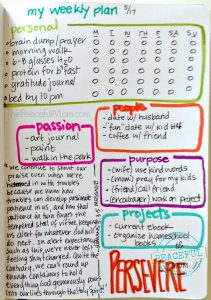 my weekly plan 5/17
personal
M T W TH F SA SU
brain dump/prayer
morning walk
6-8 glasses H2O
protein for b'fast
gratitude journal
bed by 10 pm
thepeacefulmom.com
passion
- art journal
- paint
- walk in the park
people
- date w/husband
- "fun" date w/ kid #4
- coffee w/ friend
purpose
- (wife) use kind words
- (mom) pray for my kids
- (friend) call friend
- (encourager) work on project
projects
- current ebook
- organize homeschool
books
even when we're
hemmed in with troubles
because we know how
troubles can develop
patience in us, and how that
patience in turn forges the
tempered steel of virtue, keeping
us alert for whatever God will
do next. In alert expectancy
such as this, we're never left
feeling shortchanged. Quite the
contrary, we can't round up
enough containers to hold
everything God generously pours
into our lives through the Holy Spirit
PERSEVERE
the
PEACEFUL
mom